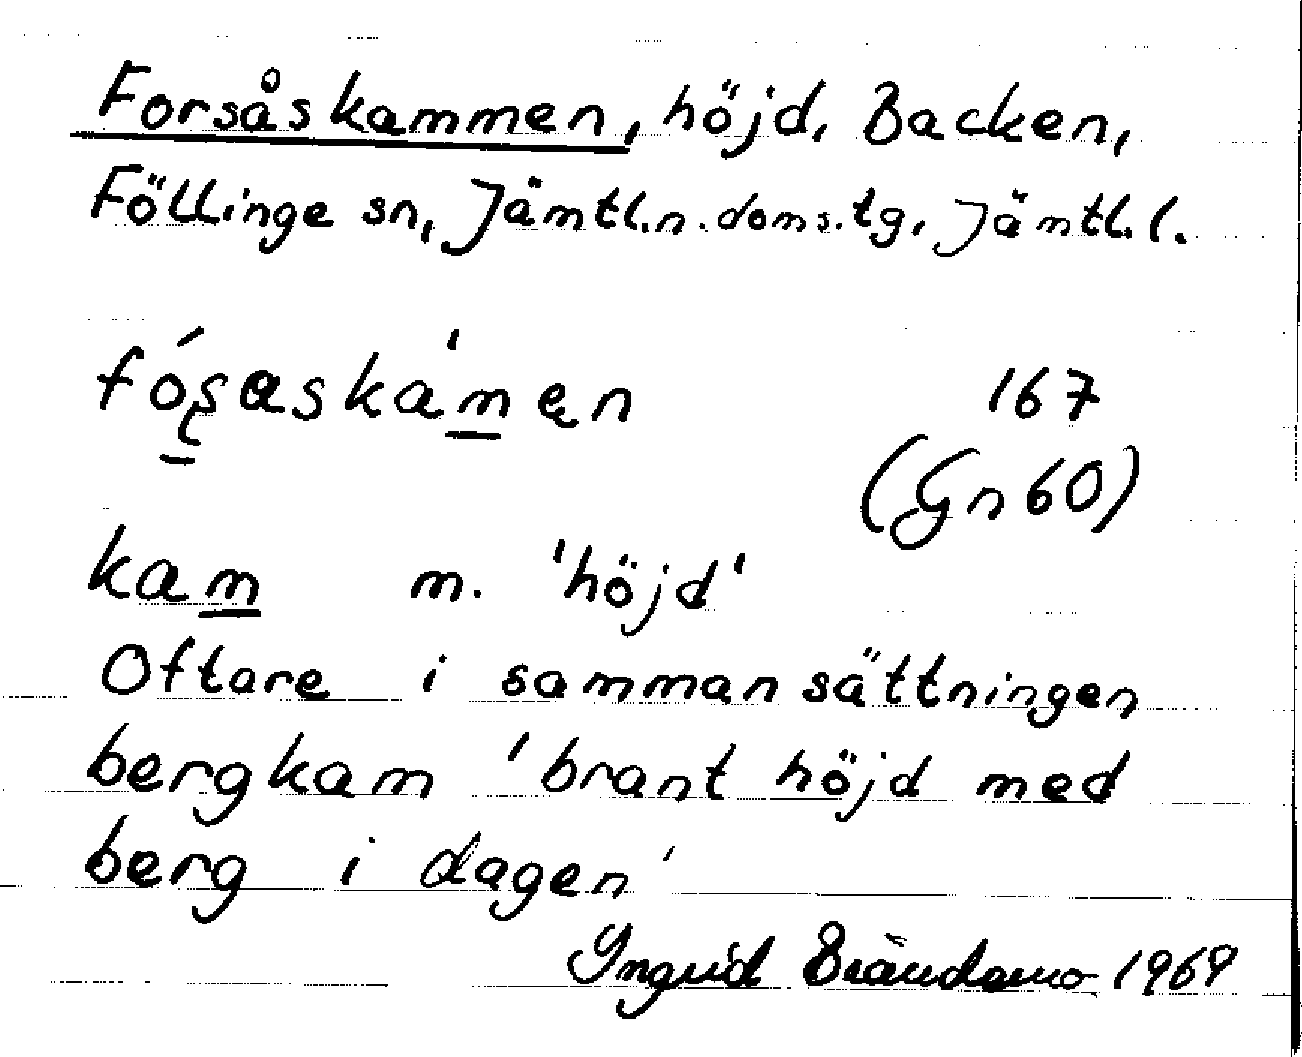 Forsåskammen, höjd, Backen,
Föllinge sn, Jämtl.n.doms.tg, Jämtl.l.
fo̗s̨aska̍m̲en
167
(Gn 60)
kam̲ m. 'höjd'
Oftare i sammansättningen
bergkam 'brant höjd med
berg i dagen'
Ingrid Brändamo 1969